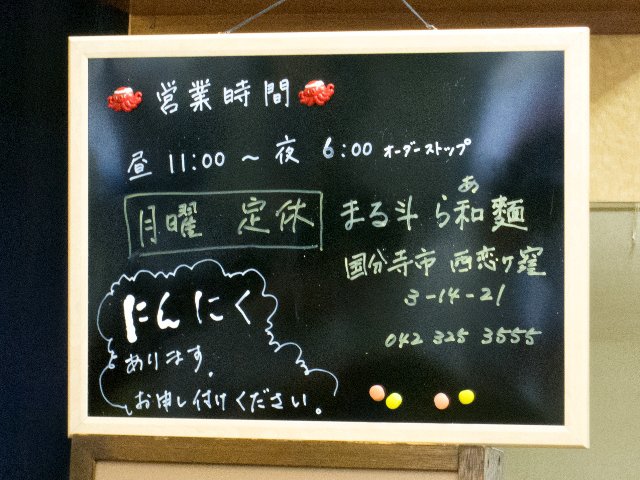 営業時間
昼 11:00 ~ 夜 6:00 オーダーストップ
月曜 定休
まる斗 ら和麺
あ
国分寺市 西恋ヶ窪
3-14-21
042 325 3555
にんにく
あります。
お申し付けください。